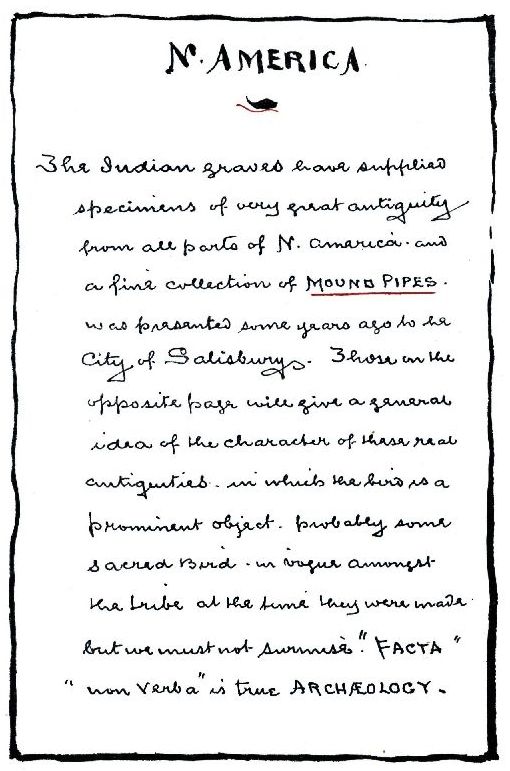 N. AMERICA
The Indian graves have supplied
specimens of very great antiquity
from all parts of N. America. and
a fine collection of MOUND PIPES.
was presented some years ago to the
City of Salisbury. Those on the
opposite page will give a general
idea of the character of these real
antiquities. in which the bird is a
prominent object. probably some
sacred Bird. in vogue amongst
the tribe at the time they were made
but we must not surmise. "FACTA"
"non Verba" is true ARCHÆOLOGY.